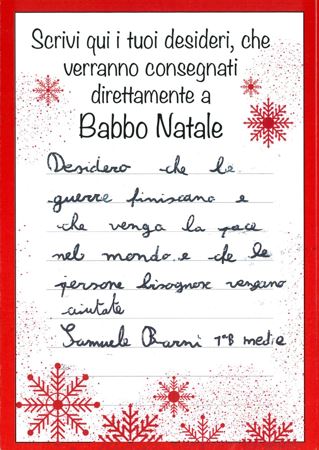 Scrivi qui i tuoi desideri, che
verranno consegnati
direttamente a
Babbo Natale
Desidero che le
guerre finiscano e
che venga la pace
nel mondo e che le
persone bisognose vengano
aiutate
Samuele Barni 1ªB media